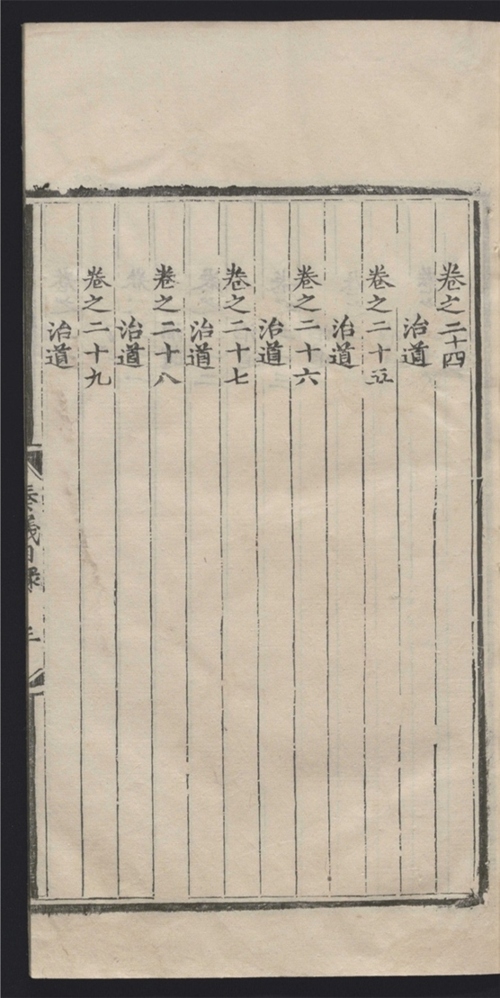 卷之二十四
治道
卷之二十五
治道
卷之二十六
治道
卷之二十七
治道
卷之二十八
治道
卷之二十九
治道
奏議目錄